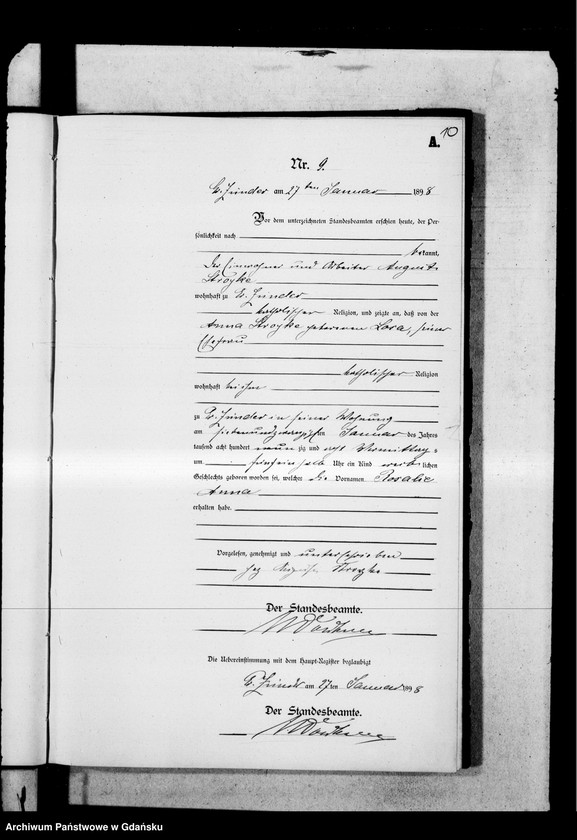 10
A.
Nr. 9.
Gr. Zünder am 27ten Januar 1898
Vor dem unterzeichneten Standesbeamten erschien heute, der Per-
sönlichkeit nach
bekannt,
der Einwohner und Arbeiter August
Stroyke
wohnhaft zu Gr. Zünder
katholischer Religion, und zeigte an, daß von der
Anna Stroyke geborenen Lora, seiner
Ehefrau
katholischer Religion
wohnhaft bei ihm
zu Gr. Zünder in seiner Wohnung
am siebenundzwanzigsten Januar des Jahres
tausend acht hundert neunzig und acht Vormittags
um Uhr ein Kind weiblichen
Geschlechts geboren worden sei, welches die Vornamen Rosalie
Anna
erhalten habe.
Vorgelesen, genehmigt und unterschrieben
gez August Stroyke
Der Standesbeamte.
Die Uebereinstimmung mit dem Haupt-Register beglaubigt
Gr. Zünder am 27ten Januar 1898
Der Standesbeamte.
Archiwum Państwowe w Gdańsku